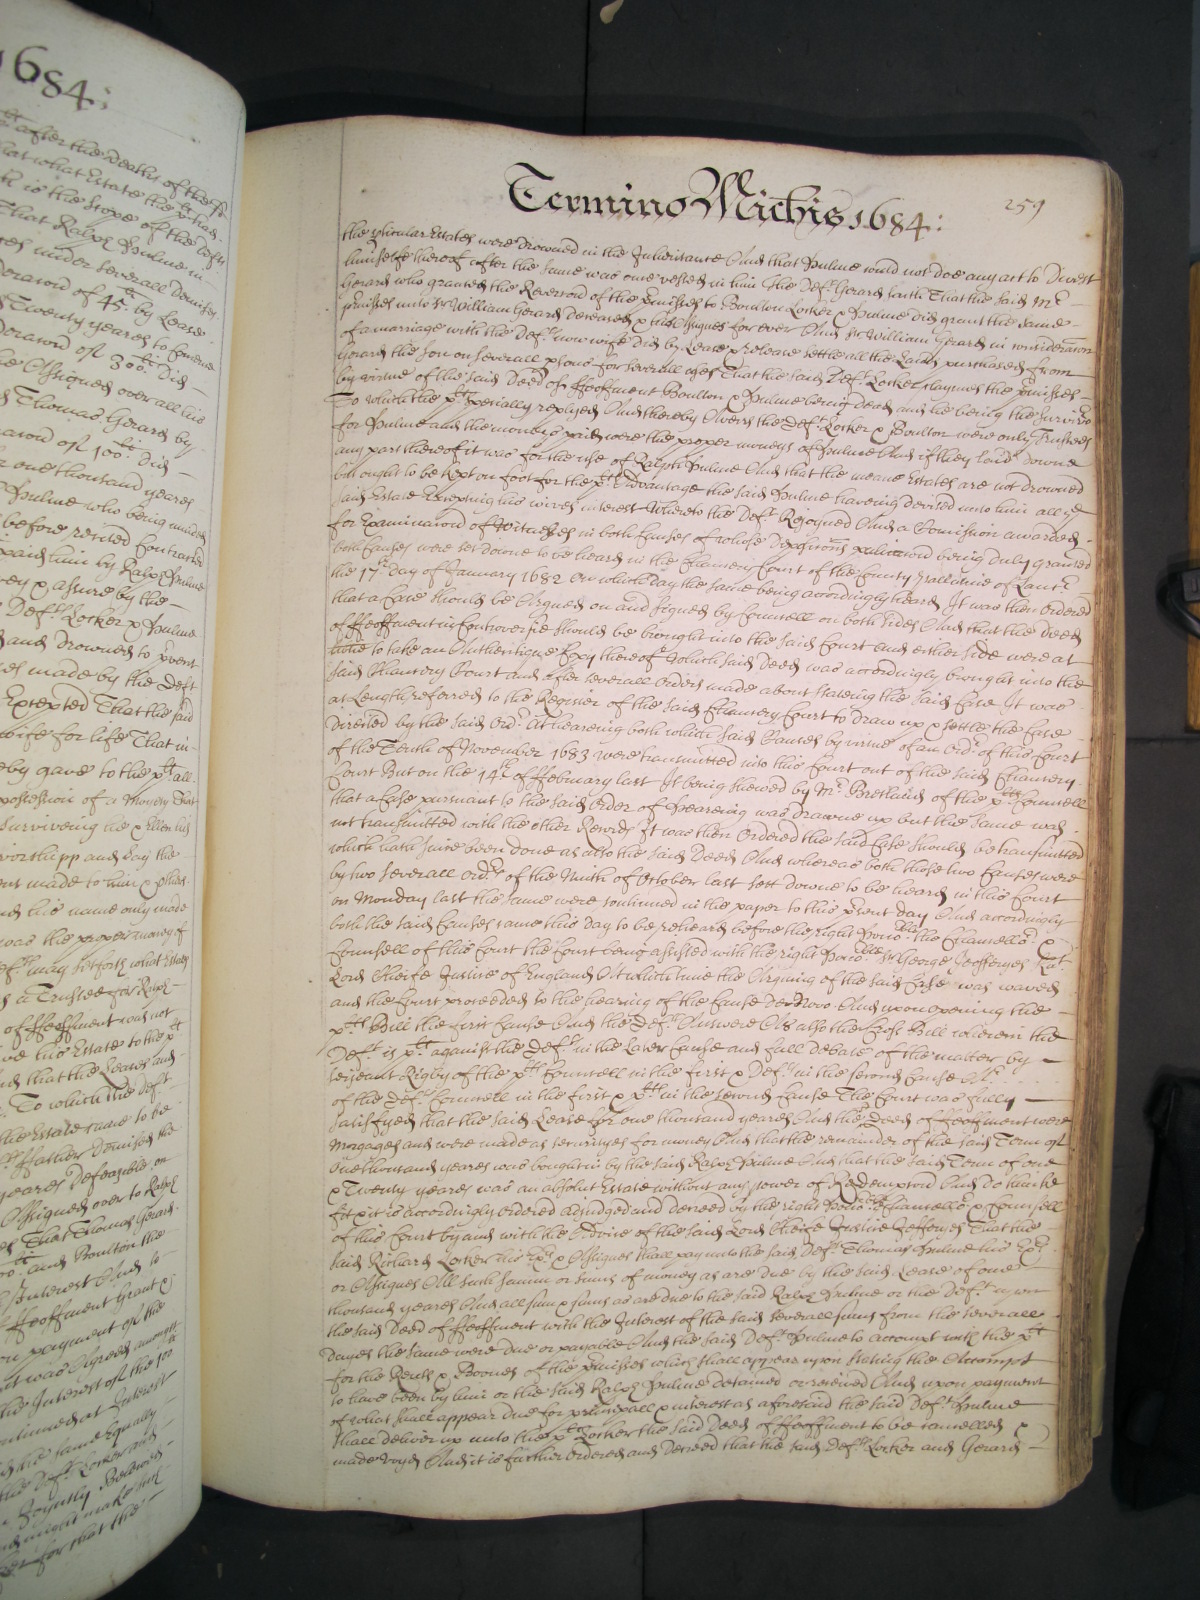 1684:
after the Deaths of the
that what Estate the
is the scope of the
That Ralph Spulme in
under severall Demises
of 45 by Lease
Twenty yeares to
of 300 Did
Assigned over all his
Thomas Gerard by
of 100 Did
one thousand yeares
Spulme who being
before recited Contracted
paid him by Ralph Spulme
& assure by the
Deft Locker & Spulme
and Drowned to prvent
made by the Deft
Excepted That the said
wife for life That in
gave to the plt all
possession of a Moyety That
Surviveing the & Ellen his
worshipp and Say the
made to him &
his name only made
was the proper money of
may sett forth what Estate
a Trustee for Ralph
of ffeoffment was not
his Estate to the plt
that the Leases and
To which the deft
the Estate came to be
ffather Demised the
yeares Defeazible on
Assigned over to Ralph
That Thomas Gerard
and Boulton the
Interest And to
ffeoffment Grant &
on payment of the
was Agreed amongst
the Interest of the 100
at Interest
the same Equally
the Deft Locker and
Joyntly Between
might make such
for that the
Termino Michis 1684:
259
the pticular Estates were drowned in the Inheritance And that Spulme could not doe any act to Divest
himselfe thereof after the same was once vested in him The Deft Gerard saith That the said Mr
Gerard who granted the Reverson of the pmisses to Boulton Locker & Spulme Did grant the same
pmisses unto Sr William Gerard Deceased & his Assignes for ever And Sr William Gerard in consideracon
of a marriage with the Defts now wife Did by Lease & release settle all the Lands purchased from
Gerard the Son on severall psons for severall uses That the said Deft Locker claymes the pmisses
by virtue of the said Deed of ffeoffment Boulton & Spulme being Dead and he being the Survivor
To which the plt specially replyed And thereby Averrs the Deft Locker & Boulton were only Trustees
for Spulme and the moneys paid were the proper moneys of Spulme And if they laid Downe
any part thereof it was for the use of Ralph Spulme And that the meane Estates are not drowned
but ought to be kept on foot for the plts Advantage the said Spulme haveing devised unto him all ye
said Estate Excepting his wives interest Whereto the Deft Rejoyned And a Comission awarded
for Examinacon of Witnesses in both Causes of whose Deposicons publicacon being duly granted
both Causes were set downe to be heard in the Chancery Court of the County Pallatine of Lancr
the 17th Day of January 1682 On which day the same being accordingly heard It was then Ordered
that a Case should be Argued on and signed by Councell on both sides And that the Deed
of ffeoffment in Controversie should be brought into the said Court and either side were at
to take an Authentique Copy thereof Which said Deed was accordingly brought into the
said Chancery Court and after severall Orders made about stateing the said Case It was
at Length referred to the Register of the said Chancery Court to draw up & settle the Case
directed by the said Ordr At heareing both which said Causes by virtue of an Ordr of this Court
of the Tenth of November 1683 were transmitted into this Court out of the said Chancery
Court But on the 14th of ffebruary last It being shewed by Mr Bretland of the plts Councell
that a Case pursuant to the said Order of heareing was drawne up but the same was
not transmitted with the other Records It was then Ordered the said Case should be transmitted
which hath since been done as also the said Deed And whereas both those two Causes were
by two severall Ordrs of the Ninth of October last sett downe to be heard in this Court
on Monday last the same were continued in the paper to this prsent day And accordingly
both the said Causes came this Day to be reheard before the right honoble the Chancellor &
Councell of this Court the Court being assisted with the right honoble Sr George Jeofferyes Kat
Lord Cheife Justice of England At which time the Arguing of the said Case was waved
and the Court proceeded to the hearing of the Cause De Novo And upon opening the
plts Bill the first Cause And the Defts Answere As also the Cross Bill wherein the
Deft is plt against the Deft in the Later Cause and full debate of the matter by
Serjeant Rigby of the plts Councell in the first & Defts in the second Cause Mr
of the Defts Councell in the first & plts in the second Cause The Court was fully
satisfyed that the said Lease for one thousand yeares And the Deed of ffeoffment were
Morgages and were made as securityes for money And that the remainder of the said Terme of
One thousand yeares was bought in by the said Ralph Spulme And that the said Terme of one
& Twenty yeares was an absolut Estate without any power of Redempcon And do thinke
fit & it is accordingly ordered adjudged and decreed by the right honoble the Chancellor & Councell
of this Court by and with the Advice of the said Lord Cheife Justice Jefferyes That the
said Richard Locker his & Assignes shall pay unto the said Deft Thomas Spulme his Exrs
or Assignes All such summ or sums of money as are due by the said Lease of one
thousand yeares And all sum & sums as are due to the said Ralph Spulme or the Deft upon
the said Deed of ffeoffment with the Interest of the said severall sums from the severall
Dayes the same were due or payable And the said Deft Spulme to accompt with the plt
for the Rents & Boones of the pmisses which shall appear upon stateing the Accompt
to have been by him or the said Ralph Spulme detained or received And upon payment
of what shall appear due for principall & interest as aforesaid the said Deft Spulme
shall deliver up unto the plt Locker the said Deed of ffeoffment to be cancelled &
made voyd And it is further ordered and Decreed that the said Defts Locker and Gerard